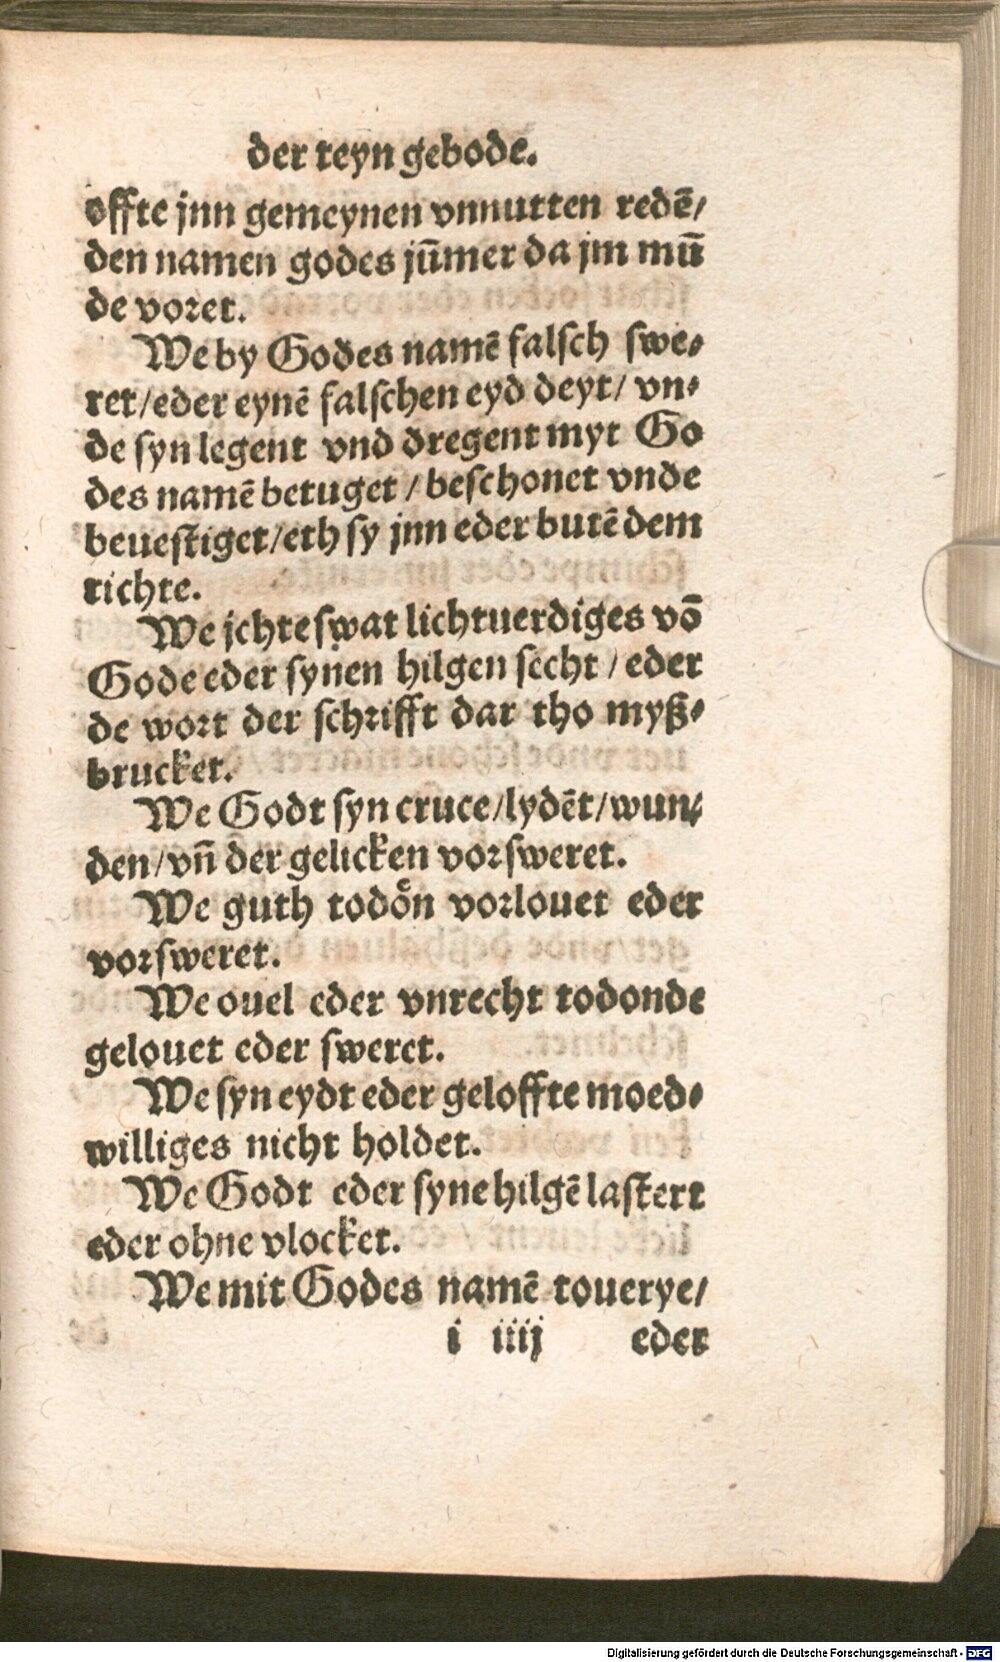 der teyn gebode.
offte jnn gemeynen vnnutten redē/
den namen godes jūmer da jm mū
de voret.
We by Godes namē falsch swe⸗
ret/eder eynē falschen eyd deyt/ vn⸗
de syn legent vnd dregent myt Go
des namē betuget / beschonet vnde
beuestiget/eth sy jnn eder butē dem
richte.
We jchteswat lichtuerdiges vō
Gode eder synen hilgen secht / eder
de wort der schrifft dar tho myß⸗
brucket.
We Godt syn cruce/lydēt/wun⸗
den/vn̄ der gelicken vorsweret.
We guth todoͤn vorlouet eder
vorsweret.
We ouel eder vnrecht todonde
gelouet eder sweret.
We syn eydt eder geloffte moed⸗
williges nicht holdet.
We Godt eder syne hilgē lastert
eder ohne vlocket.
We mit Godes namē touerye/
i iiij eder
Digitalisierung gefördert durch die Deutsche Forschungsgemeinschaft - DFG